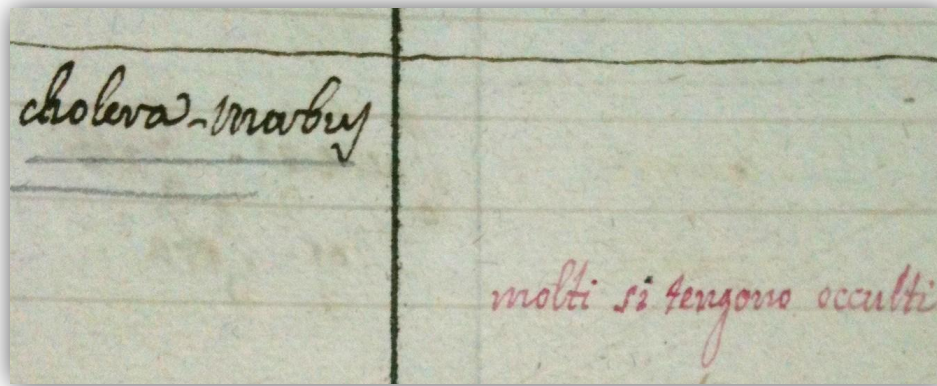 cholera-morbus
molti si tengono occulti